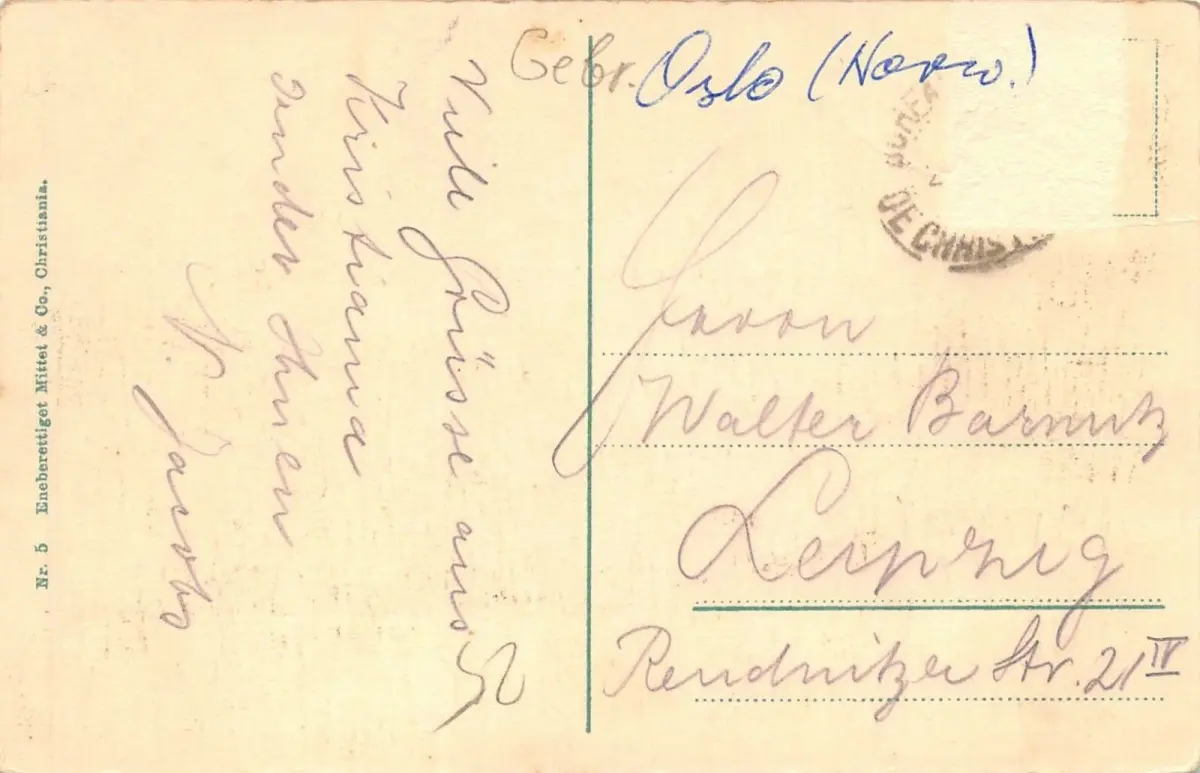 Gebr. Oslo (Norw.)
Viele Grüsse aus
Kristiania
sendet Ihnen
N. Jacobs
Nr. 5 Eneberettiget Mittet & Co., Christiania.
DE CHRIST
Herrn
Walter Barnutz
Leipzig
Reudnitzer Str. 21 IV